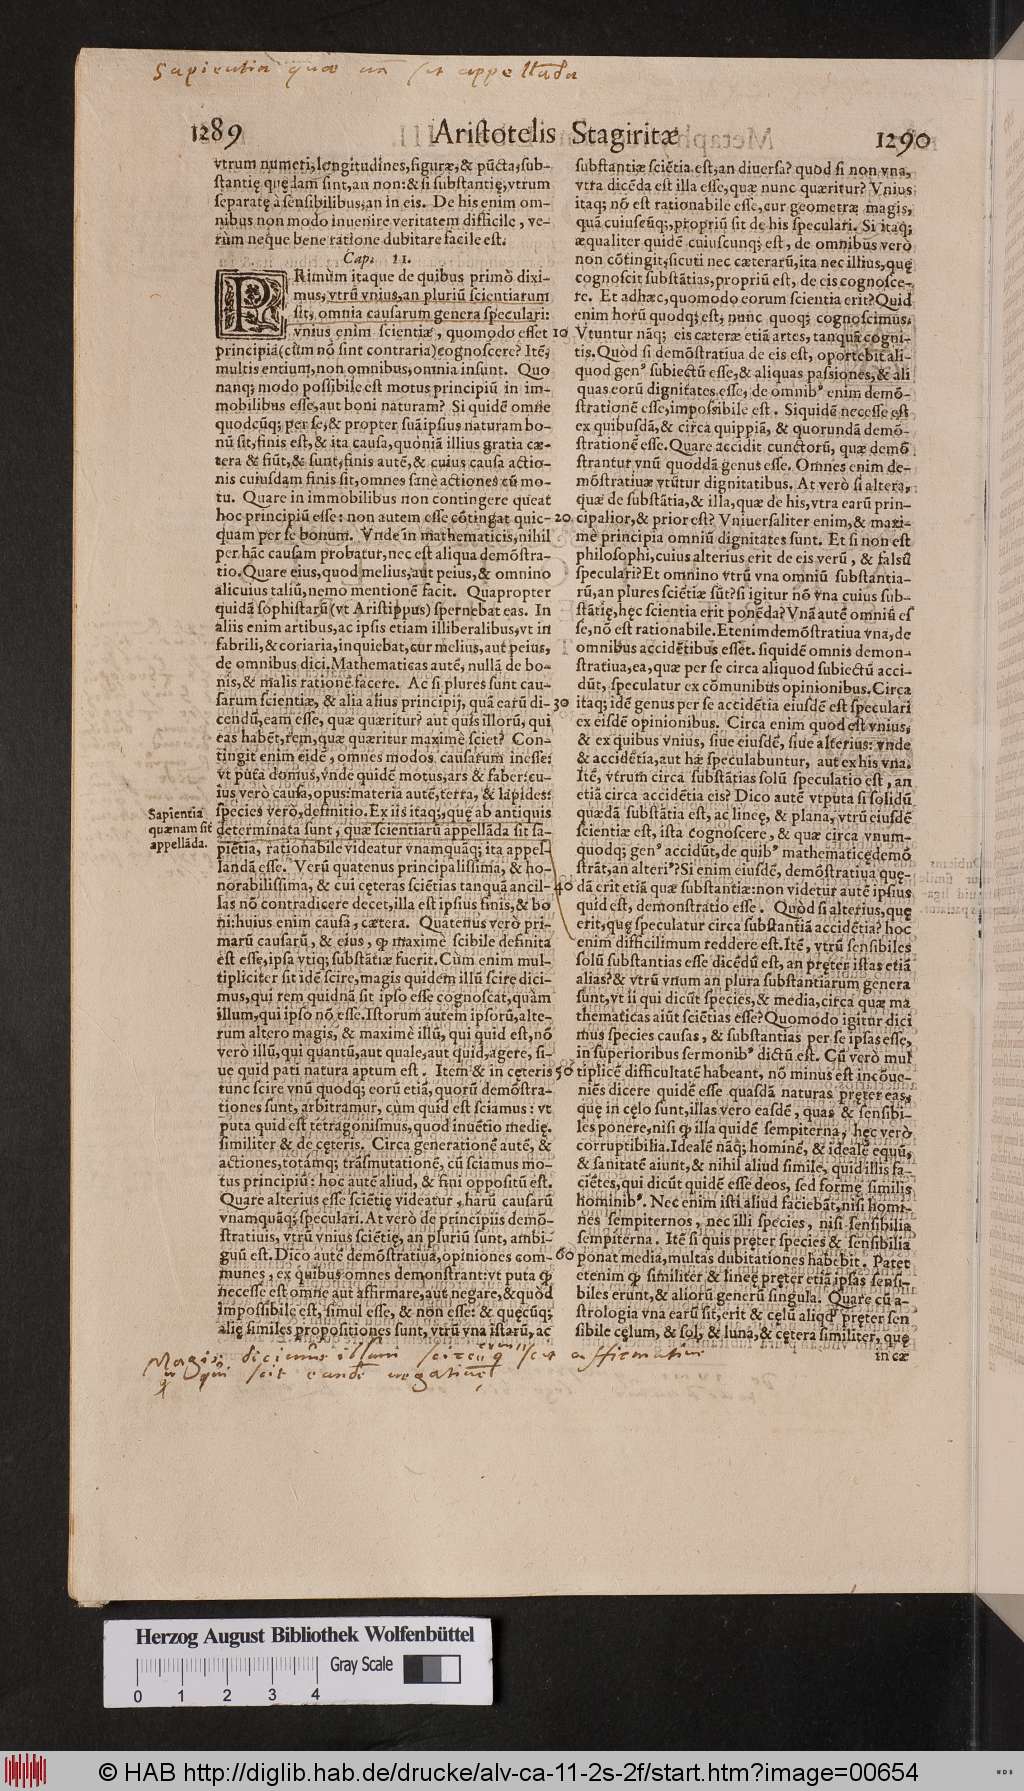 Sapientia quae una sit appellāda
1289
Aristotelis Stagiritæ
1290
vtrum numeri, longitudines, figuræ, & pūcta, sub-
stantię quędam sint, an non: & si substantię, vtrum
separatę à sensibilibus, an in eis. De his enim om-
nibus non modo inuenire veritatem difficile, ve-
rùm neque bene ratione dubitare facile est.
Cap. II.
PRimùm itaque de quibus primò dixi-
mus, vtrū vnius, an pluriū scientiarum
sit, omnia causarum genera speculari:
vnius enim scientiæ, quomodo esset
principia (cùm nō sint contraria) cognoscere? Itē,
multis entium, non omnibus, omnia insunt. Quo
nanq; modo possibile est motus principiū in im-
mobilibus esse, aut boni naturam? Si quidē omne
quodcūq; per se, & propter suā ipsius naturam bo-
nū sit, finis est, & ita causa, quoniā illius gratia cæ-
tera & fiūt, & sunt, finis autē, & cuius causa actio-
nis cuiusdam finis sit, omnes sanè actiones cū mo-
tu. Quare in immobilibus non contingere queat
hoc principiū esse: non autem esse cōtingat quic-
quam per se bonum. Vnde in mathematicis, nihil
per hāc causam probatur, nec est aliqua demōstra-
tio. Quare eius, quod melius, aut peius, & omnino
alicuius taliū, nemo mentionē facit. Quapropter
quidā sophistarū (vt Aristippus) spernebat eas. In
aliis enim artibus, ac ipsis etiam illiberalibus, vt in
fabrili, & coriaria, inquiebat, cur melius, aut peius,
de omnibus dici. Mathematicas autē, nullā de bo-
nis, & malis rationē facere. Ac si plures sunt cau-
sarum scientiæ, & alia alius principij, quā earū di-
cendū, eam esse, quæ quæritur? aut quis illorū, qui
eas habēt, rem, quæ quæritur maximè sciet? Con-
tingit enim eidē, omnes modos causarum inesse:
vt puta domus, vnde quidē motus, ars & faber: cu-
ius verò causa, opus: materia autē, terra, & lapides:
species verò, definitio. Ex iis itaq;, quę ab antiquis
determinata sunt, quæ scientiarū appellāda sit sa-
piētia, rationabile videatur vnamquāq; ita appel-
landā esse. Verū quatenus principalissima, & ho-
norabilissima, & cui cęteras sciētias tanquā ancil-
las nō contradicere decet, illa est ipsius finis, & bo
ni: huius enim causa, cætera. Quatenus verò pri-
marū causarū, & eius, ꝙ maximè scibile definita
est esse, ipsa vtiq; substātiæ fuerit. Cùm enim mul-
tipliciter sit idē scire, magis quidem illū scire dici-
mus, qui rem quidnā sit ipso esse cognoscat, quàm
illum, qui ipso nō esse. Istorum autem ipsorū, alte-
rum altero magis, & maximè illū, qui quid est, nō
verò illū, qui quantū, aut quale, aut quid, agere, si-
ue quid pati natura aptum est. Item & in cęteris
tunc scire vnū quodq; eorū etiā, quorū demōstra-
tiones sunt, arbitramur, cùm quid est sciamus: vt
puta quid est tetragonismus, quod inuētio medię.
similiter & de cęteris. Circa generationē autē, &
actiones, totāmq; trāsmutationē, cū sciamus mo-
tus principiū: hoc autē aliud, & fini oppositū est.
Quare alterius esse sciētię videatur, harū causarū
vnamquāq; speculari. At verò de principiis demō-
stratiuis, vtrū vnius sciētię, an pluriū sunt, ambi-
guū est. Dico autē demōstratiua, opiniones com-
munes, ex quibus omnes demonstrant: vt puta ꝙ
necesse est omne aut affirmare, aut negare, & quòd
impossibile est, simul esse, & non esse: & quęcūq;
alię similes propositiones sunt, vtrū vna istarū, ac
Sapientia
quænam sit
appellāda.
10
20
30
40
50
60
substantiæ sciētia est, an diuersa? quod si non vna,
vtra dicēda est illa esse, quæ nunc quæritur? Vnius
itaq; nō est rationabile esse, cur geometræ magis,
quā cuiuscūq;, propriū sit de his speculari. Si itaq;
æqualiter quidē cuiuscunq; est, de omnibus verò
non cōtingit, sicuti nec cæterarū, ita nec illius, quę
cognoscit substātias, propriū est, de eis cognosce-
re. Et adhæc, quomodo eorum scientia erit? Quid
enim horū quodq; est, nunc quoq; cognoscimus.
Vtuntur nāq; eis cæteræ etiā artes, tanquā cogni-
tis. Quòd si demōstratiua de eis est, oportebit ali-
quod gen⁹ subiectū esse, & aliquas passiones, & ali
quas eorū dignitates esse, de omnib⁹ enim demō-
strationē esse, impossibile est. Siquidē necesse est
ex quibusdā, & circa quippiā, & quorundā demō-
strationē esse. Quare accidit cunctorū, quæ demō
strantur vnū quoddā genus esse. Omnes enim de-
mōstratiuæ vtūtur dignitatibus. At verò si altera,
quæ de substātia, & illa, quæ de his, vtra earū prin-
cipalior, & prior est? Vniuersaliter enim, & maxi-
mè principia omniū dignitates sunt. Et si non est
philosophi, cuius alterius erit de eis verū, & falsū
speculari? Et omnino vtrū vna omniū substantia-
rū, an plures sciētiæ sūt? si igitur nō vna cuius sub-
stātię, hęc scientia erit ponēda? Vnā autē omniū es
se, nō est rationabile. Etenim demōstratiua vna, de
omnibus accidētibus esset. siquidē omnis demon-
stratiua, ea, quæ per se circa aliquod subiectū acci-
dūt, speculatur ex cōmunibus opinionibus. Circa
itaq; idē genus per se accidētia eiusdē est speculari
ex eisdē opinionibus. Circa enim quod est vnius,
& ex quibus vnius, siue eiusdē, siue alterius: vnde
& accidētia, aut hæ speculabuntur, aut ex his vna.
Itē, vtrum circa substātias solū speculatio est, an
etiā circa accidētia eis? Dico autē vtputa si solidū
quædā substātia est, ac lineę, & plana, vtrū eiusdē
scientiæ est, ista cognoscere, & quæ circa vnum-
quodq; gen⁹ accidūt, de quib⁹ mathematicę demō
strāt, an alteri⁹? Si enim eiusdē, demōstratiua quę-
dā erit etiā quæ substantiæ: non videtur autē ipsius
quid est, demonstratio esse. Quòd si alterius, quę
erit, quę speculatur circa substantiā accidētia? hoc
enim difficilimum reddere est. Itē, vtrū sensibiles
solū substantias esse dicēdū est, an pręter istas etiā
alias? & vtrū vnum an plura substantiarum genera
sunt, vt ii qui dicūt species, & media, circa quæ ma
thematicas aiūt sciētias esse? Quomodo igitur dici
mus species causas, & substantias per se ipsas esse,
in superioribus sermonib⁹ dictū est. Cū verò mul
tiplicē difficultatē habeant, nō minus est incōue-
niēs dicere quidē esse quasdā naturas pręter eas,
quę in cęlo sunt, illas vero easdē, quas & sensibi-
les ponere, nisi ꝙ illa quidē sempiterna, hęc verò
corruptibilia. Idealē nāq; hominē, & idealē equū,
& sanitatē aiunt, & nihil aliud simile, quid illis fa-
ciētes, qui dicūt quidē esse deos, sed formę similis
hominib⁹. Nec enim isti aliud faciebāt, nisi homi-
nes sempiternos, nec illi species, nisi sensibilia
sempiterna. Itē si quis pręter species & sensibilia
ponat media, multas dubitationes habebit. Patet
etenim ꝙ similiter & lineę pręter etiā ipsas sensi-
biles erunt, & aliorū generū singula. Quare cū a-
strologia vna earū sit, erit & cęlū aliqd' pręter sen
sibile cęlum, & sol, & luna, & cętera similiter, quę
in cæ
Magis dicimus illum scire q scit affirmative
qui scit eandē negativè
Herzog August Bibliothek Wolfenbüttel
Gray Scale
0 1 2 3 4
© HAB http://diglib.hab.de/drucke/alv-ca-11-2s-2f/start.htm?image=00654